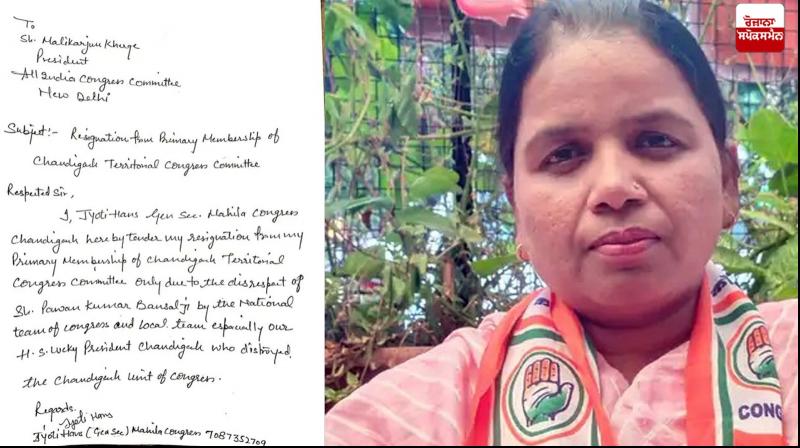 To
Sh. Malikarjun Kharge
President
All India Congress Committee
New Delhi
Subject:- Resignation from Primary Membership of
Chandigarh Territorial Congress Committee
Respected Sir,
I, Jyoti Hans Gen Sec. Mahila Congress
Chandigarh hereby tender my resignation from my
Primary Membership of Chandigarh Territorial
Congress Committee only due to the disrespect of
Sh. Pawan Kumar Bansal ji by the National
team of congress and local team especially our
H.S. Lucky President Chandigarh who distroyed
the Chandigarh unit of Congress.
Regards
Jyoti Hans
Jyoti Hans (Gen Sec) Mahila Congress 7087352709
ਰੋਜ਼ਾਨਾ
ਸਪੋਕਸਮੈਨ
CONG